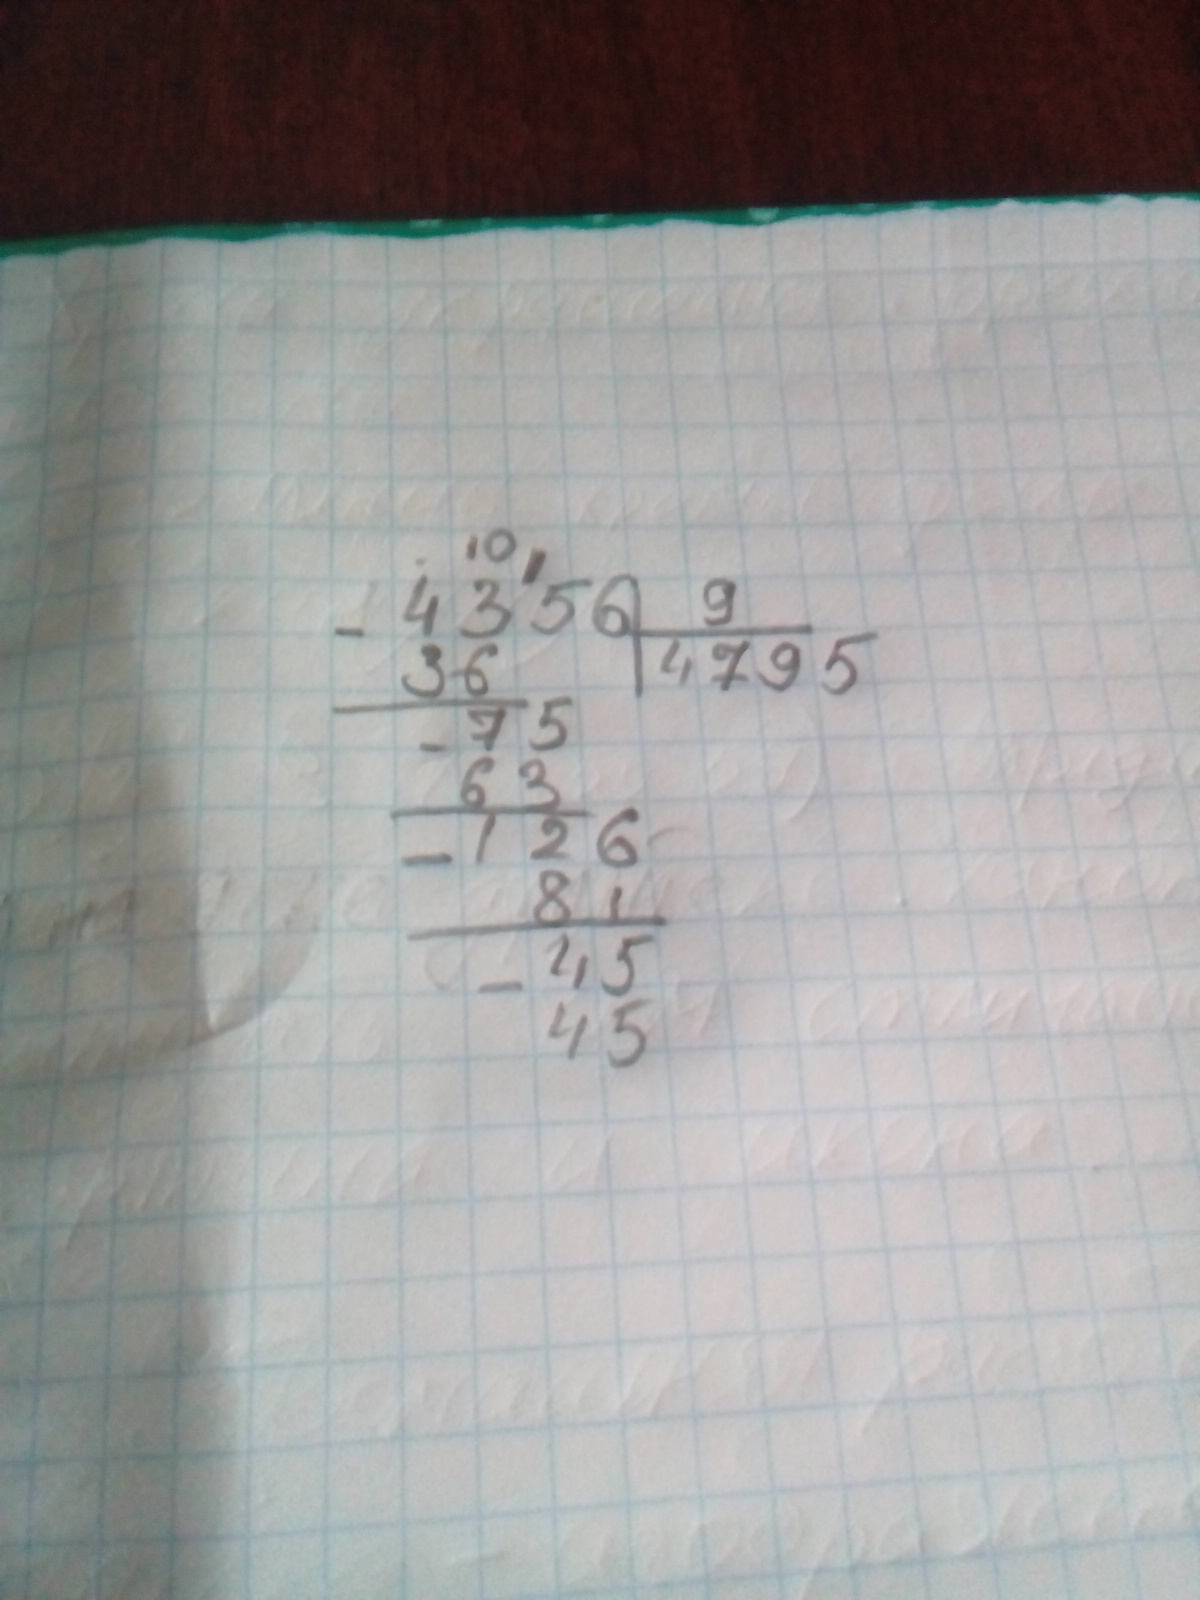 10
- 4356 9
36 4795
- 75
63
- 126
81
- 45
45